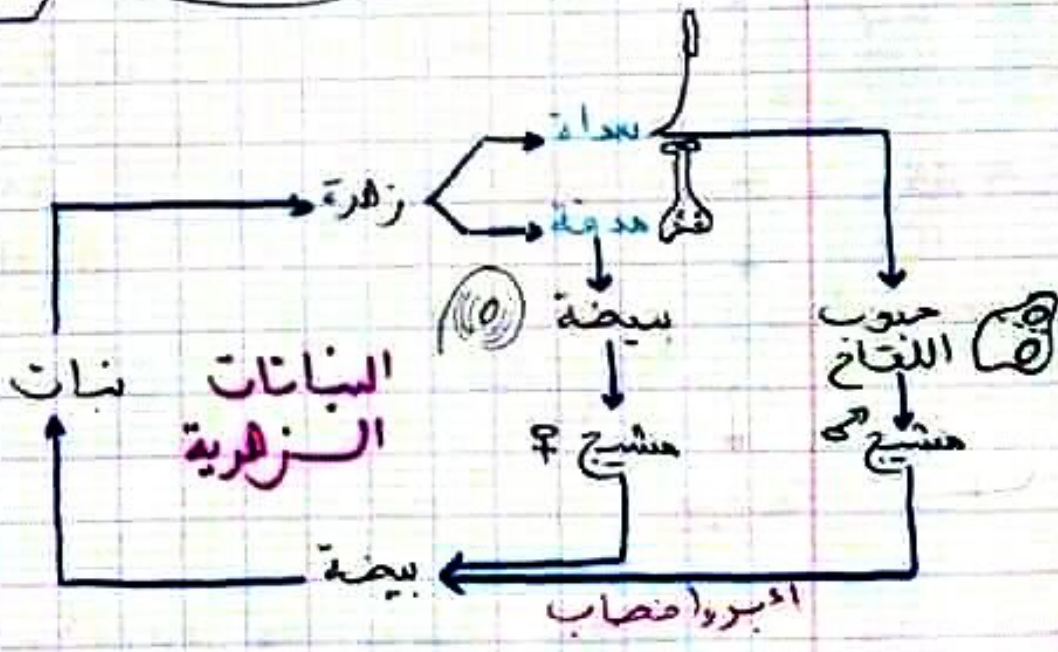 سداة
زهرة
مدقة
بييضة
حبوب
اللقاح
نبات
النباتات
الزهرية
مشيج ♀
مشيج ♂
بيضة
إخصاب